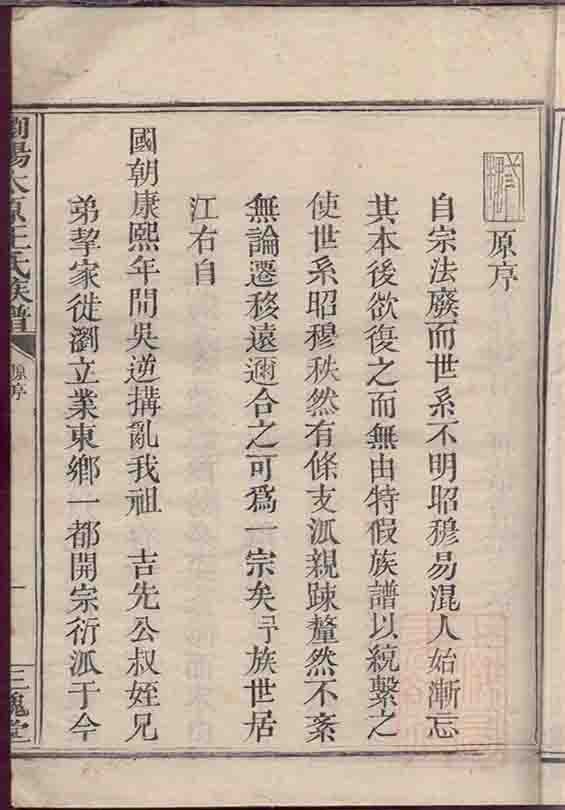 原序
自宗法廢而世系不明昭穆易混人始漸忘
其本後欲復之而無由特假族譜以統繫之
使世系昭穆秩然有條支派親踈釐然不紊
無論遷移遠邇合之可爲一宗矣予族世居
江右自
國朝康熙年間吳逆搆亂我祖 吉先公叔姪兄
弟挈家徙瀏立業東鄉一都開宗衍派于今
瀏陽太原王氏族譜
原序
一
三槐堂